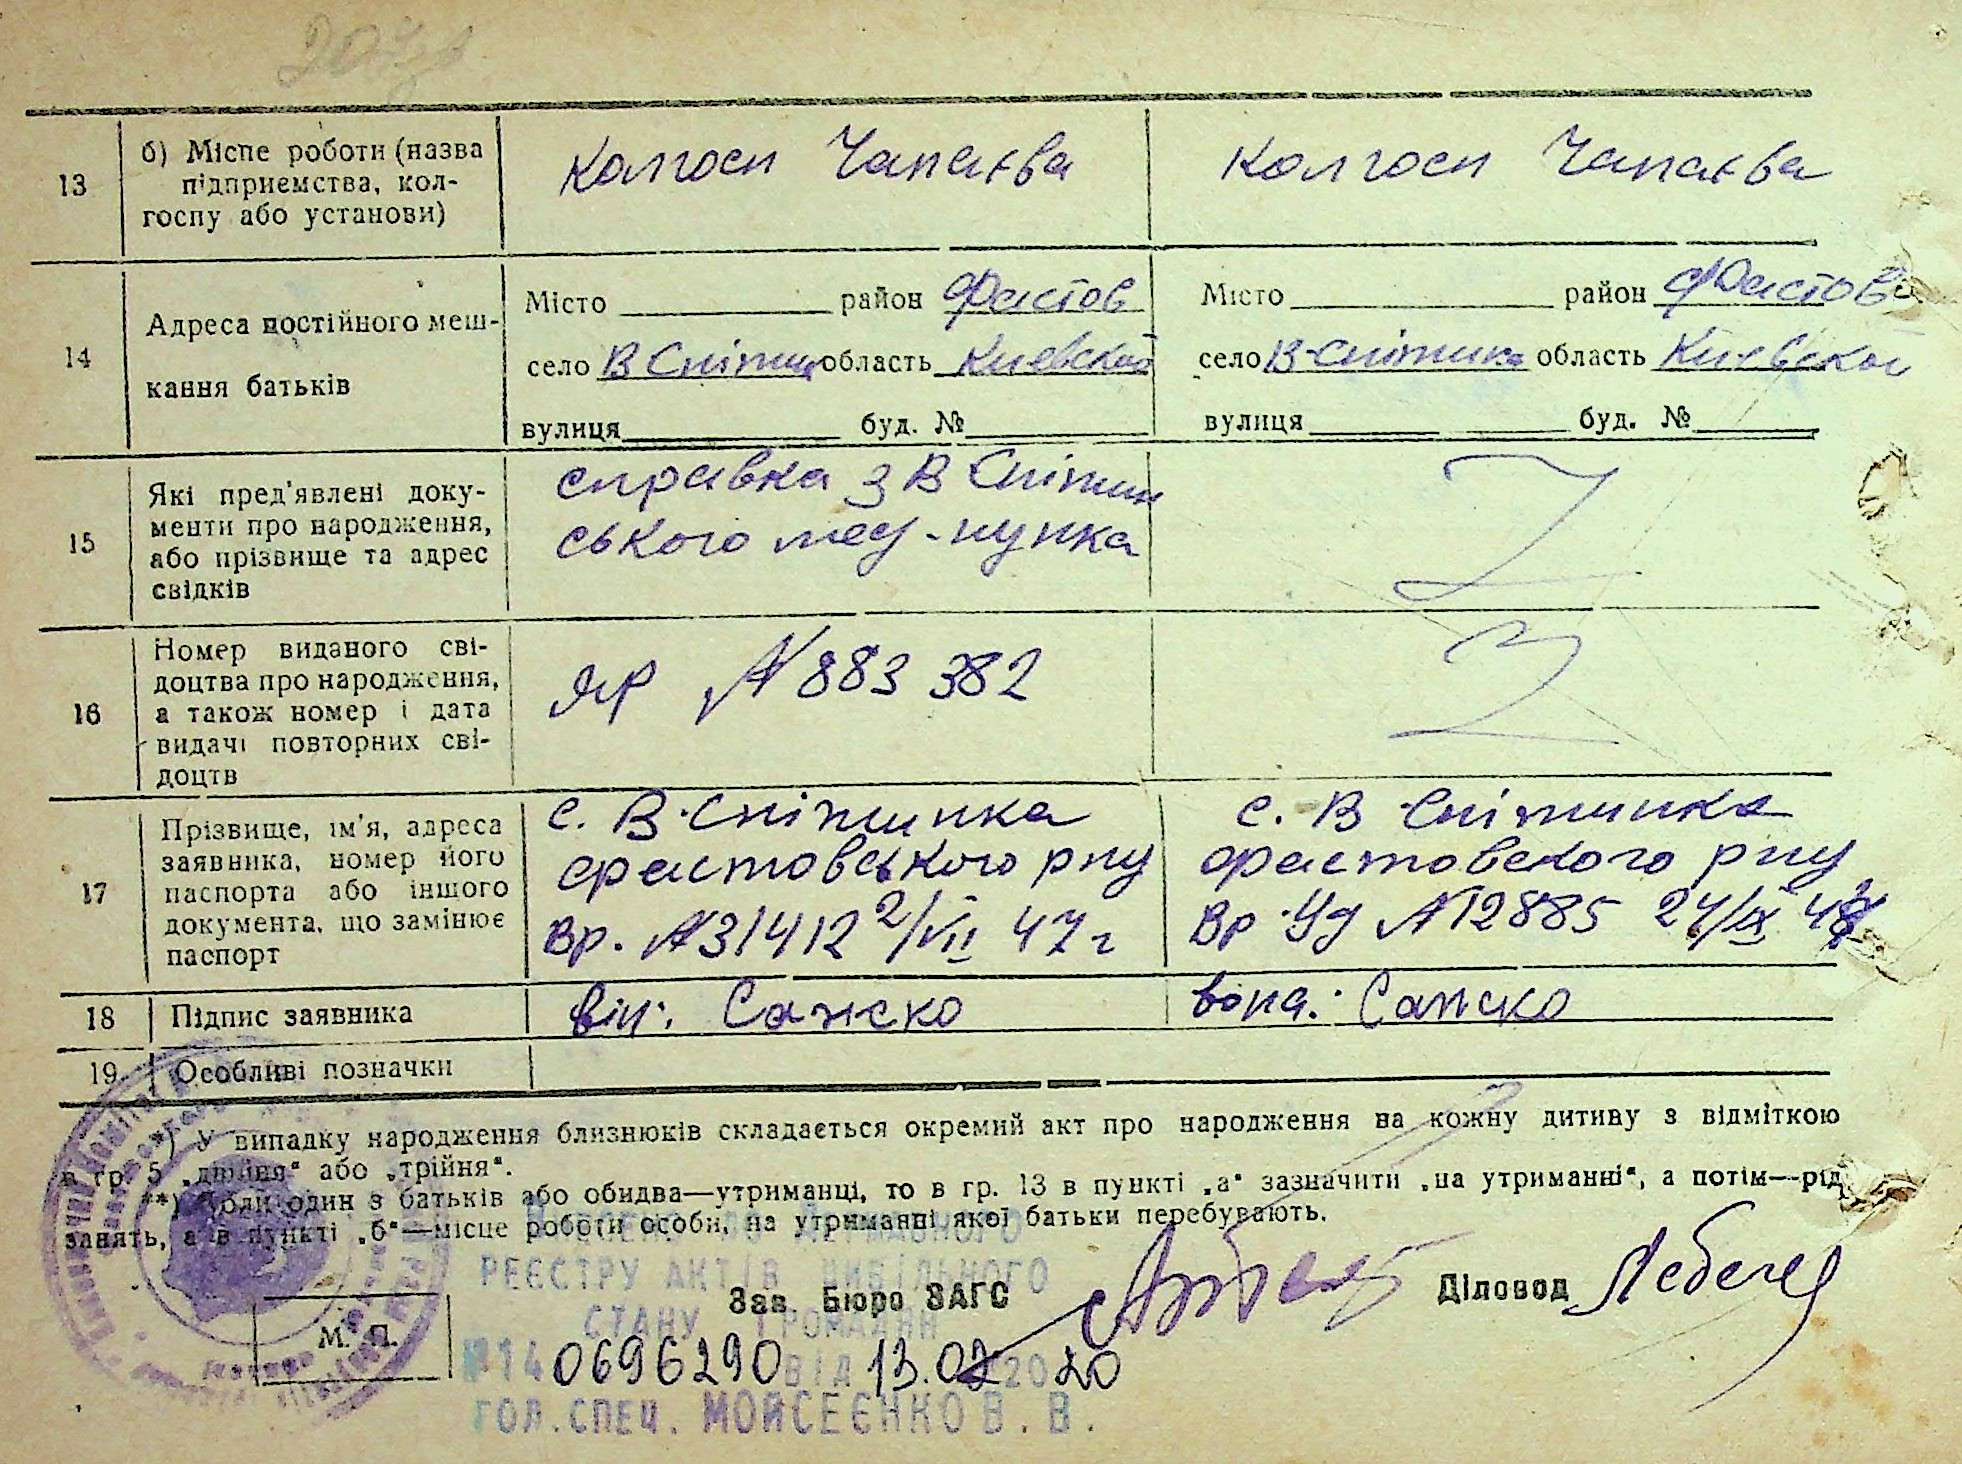 13
б) Місце роботи (назва
підприємства, кол-
госпу або установи)
колгосп Чапаєва
колгосп Чапаєва
14
Адреса постійного меш-
кання батьків
Місто район Фастов
село В Снітин область Киевской
вулиця буд. №
Місто район Фастов
село В-Снітинка область Киевской
вулиця буд. №
15
Які пред'явлені доку-
менти про народження,
або прізвище та адрес
свідків
справка з В Снітин
ського мед-пунка
16
Номер виданого сві-
доцтва про народження,
а також номер і дата
видачі повторних сві-
доцтв
ЯР № 883 382
17
Прізвище, ім'я, адреса
заявника, номер його
паспорта або іншого
документа, що замінює
паспорт
с. В-Снітинка
фастовського рпу
вр. № 31412 2/VII 47 г
с. В Снітинка
фастовского рпу
вр. Уд № 12885 24/IX
18
Підпис заявника
він:
вона:
19
Особливі позначки
*) У випадку народження близнюків складається окремий акт про народження на кожну дитину з відміткою
в гр. 5 „двійня“ або „трійня“.
**) Коли один з батьків або обидва—утриманці, то в гр. 13 в пункті „а“ зазначити „на утриманні“, а потім—рід
занять, а в пункті „б“—місце роботи особи, на утриманні якої батьки перебувають.
Державного
РЕЄСТРУ АКТІВ ЦИВІЛЬНОГО
СТАНУ ГРОМАДЯН
Зав. Бюро ЗАГС
Діловод
М. П.
№14 0696290 ВІД 13.02 2020
ГОЛ.СПЕЦ. МОЙСЕЄНКО В.В.